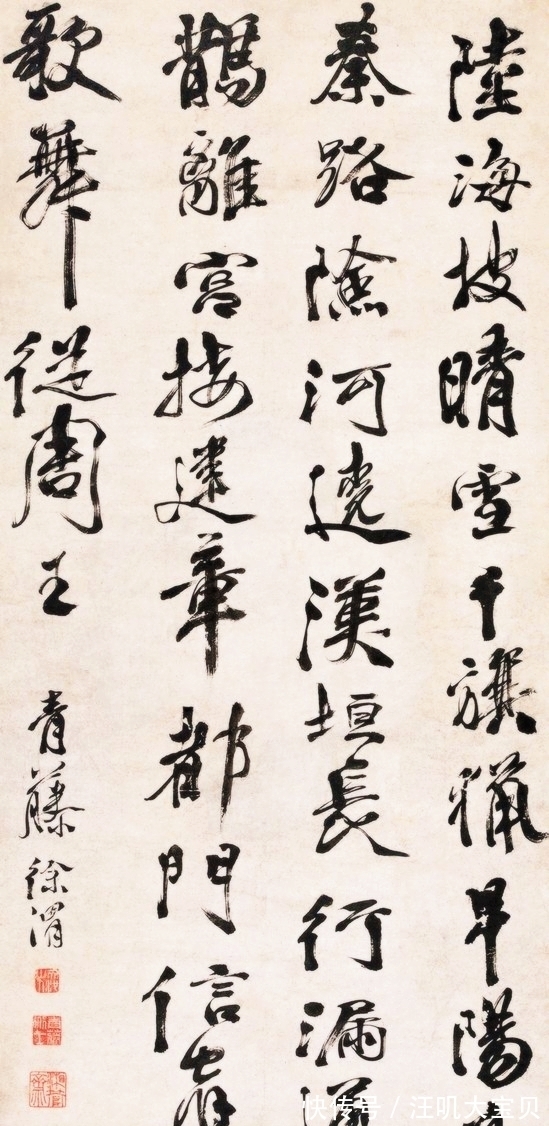 陸海披晴雪千旗獵早陽
秦路險河遶漢垣長行漏
鵲離宮接建章都門信宵
歌舞從周王
青藤徐渭
快传号/汪叽大宝贝